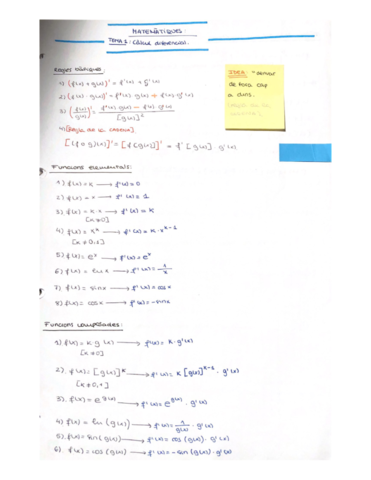 MATEMÀTIQUES
TEMA 1: Càlcul diferencial.
Regles bàsiques:
1) (f(x) + g(x))' = f'(x) + g'(x)
2) (f(x) · g(x))' = f'(x) · g(x) + f(x) · g'(x)
3) (f(x)/g(x))' = f'(x) g(x) - f(x) g'(x) / [g(x)]²
4) [Regla de la cadena]
[(f ∘ g)(x)]' = [f[g(x)]]' = f'[g(x)] · g'(x)
IDEA: "derivar
de fora cap
a dins.
Funcions elementals:
1) f(x) = K → f'(x) = 0
2) f(x) = x → f'(x) = 1
3) f(x) = K · x → f'(x) = K
[K≠0]
4) f(x) = x^K → f'(x) = K · x^K-1
[K≠0,1]
5) f(x) = e^x → f'(x) = e^x
6) f(x) = ln x → f'(x) = 1/x
7) f(x) = sin x → f'(x) = cos x
8) f(x) = cos x → f'(x) = -sin x
Funcions compostes:
1) f(x) = K · g(x) → f'(x) = K · g'(x)
[K≠0]
2) f(x) = [g(x)]^K → f'(x) = K [g(x)]^K-1 · g'(x)
[K≠0,1]
3) f(x) = e^g(x) → f'(x) = e^g(x) · g'(x)
4) f(x) = ln (g(x)) → f'(x) = 1/g(x) · g'(x)
5) f(x) = sin (g(x)) → f'(x) = cos (g(x)) · g'(x)
6) f(x) = cos (g(x)) → f'(x) = -sin (g(x)) · g'(x)